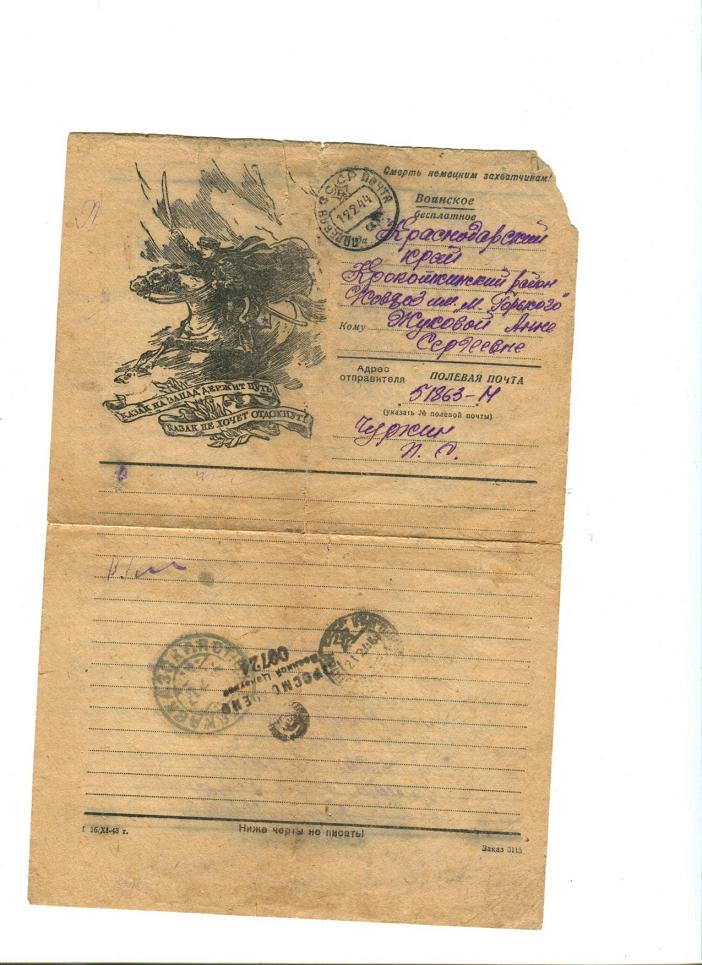 Смерть немецким захватчикам!
Воинское
бесплатное
СССР ПОЧТА
12 2 44
Краснодарский
край
район
им. М. Горького
Кому Жуковой Анне
Сергеевне
КАЗАК НА ЗАПАД ДЕРЖИТ ПУТЬ,
КАЗАК НЕ ХОЧЕТ ОТДОХНУТЬ
Адрес отправителя
ПОЛЕВАЯ ПОЧТА
51863-Н
(указать № полевой почты)
Чуркин
П. С.
ПРОСМОТРЕНО
Военной Цензурой
09724
Ниже черты не писать!
Г 16/XI-43 г.
Заказ 3115